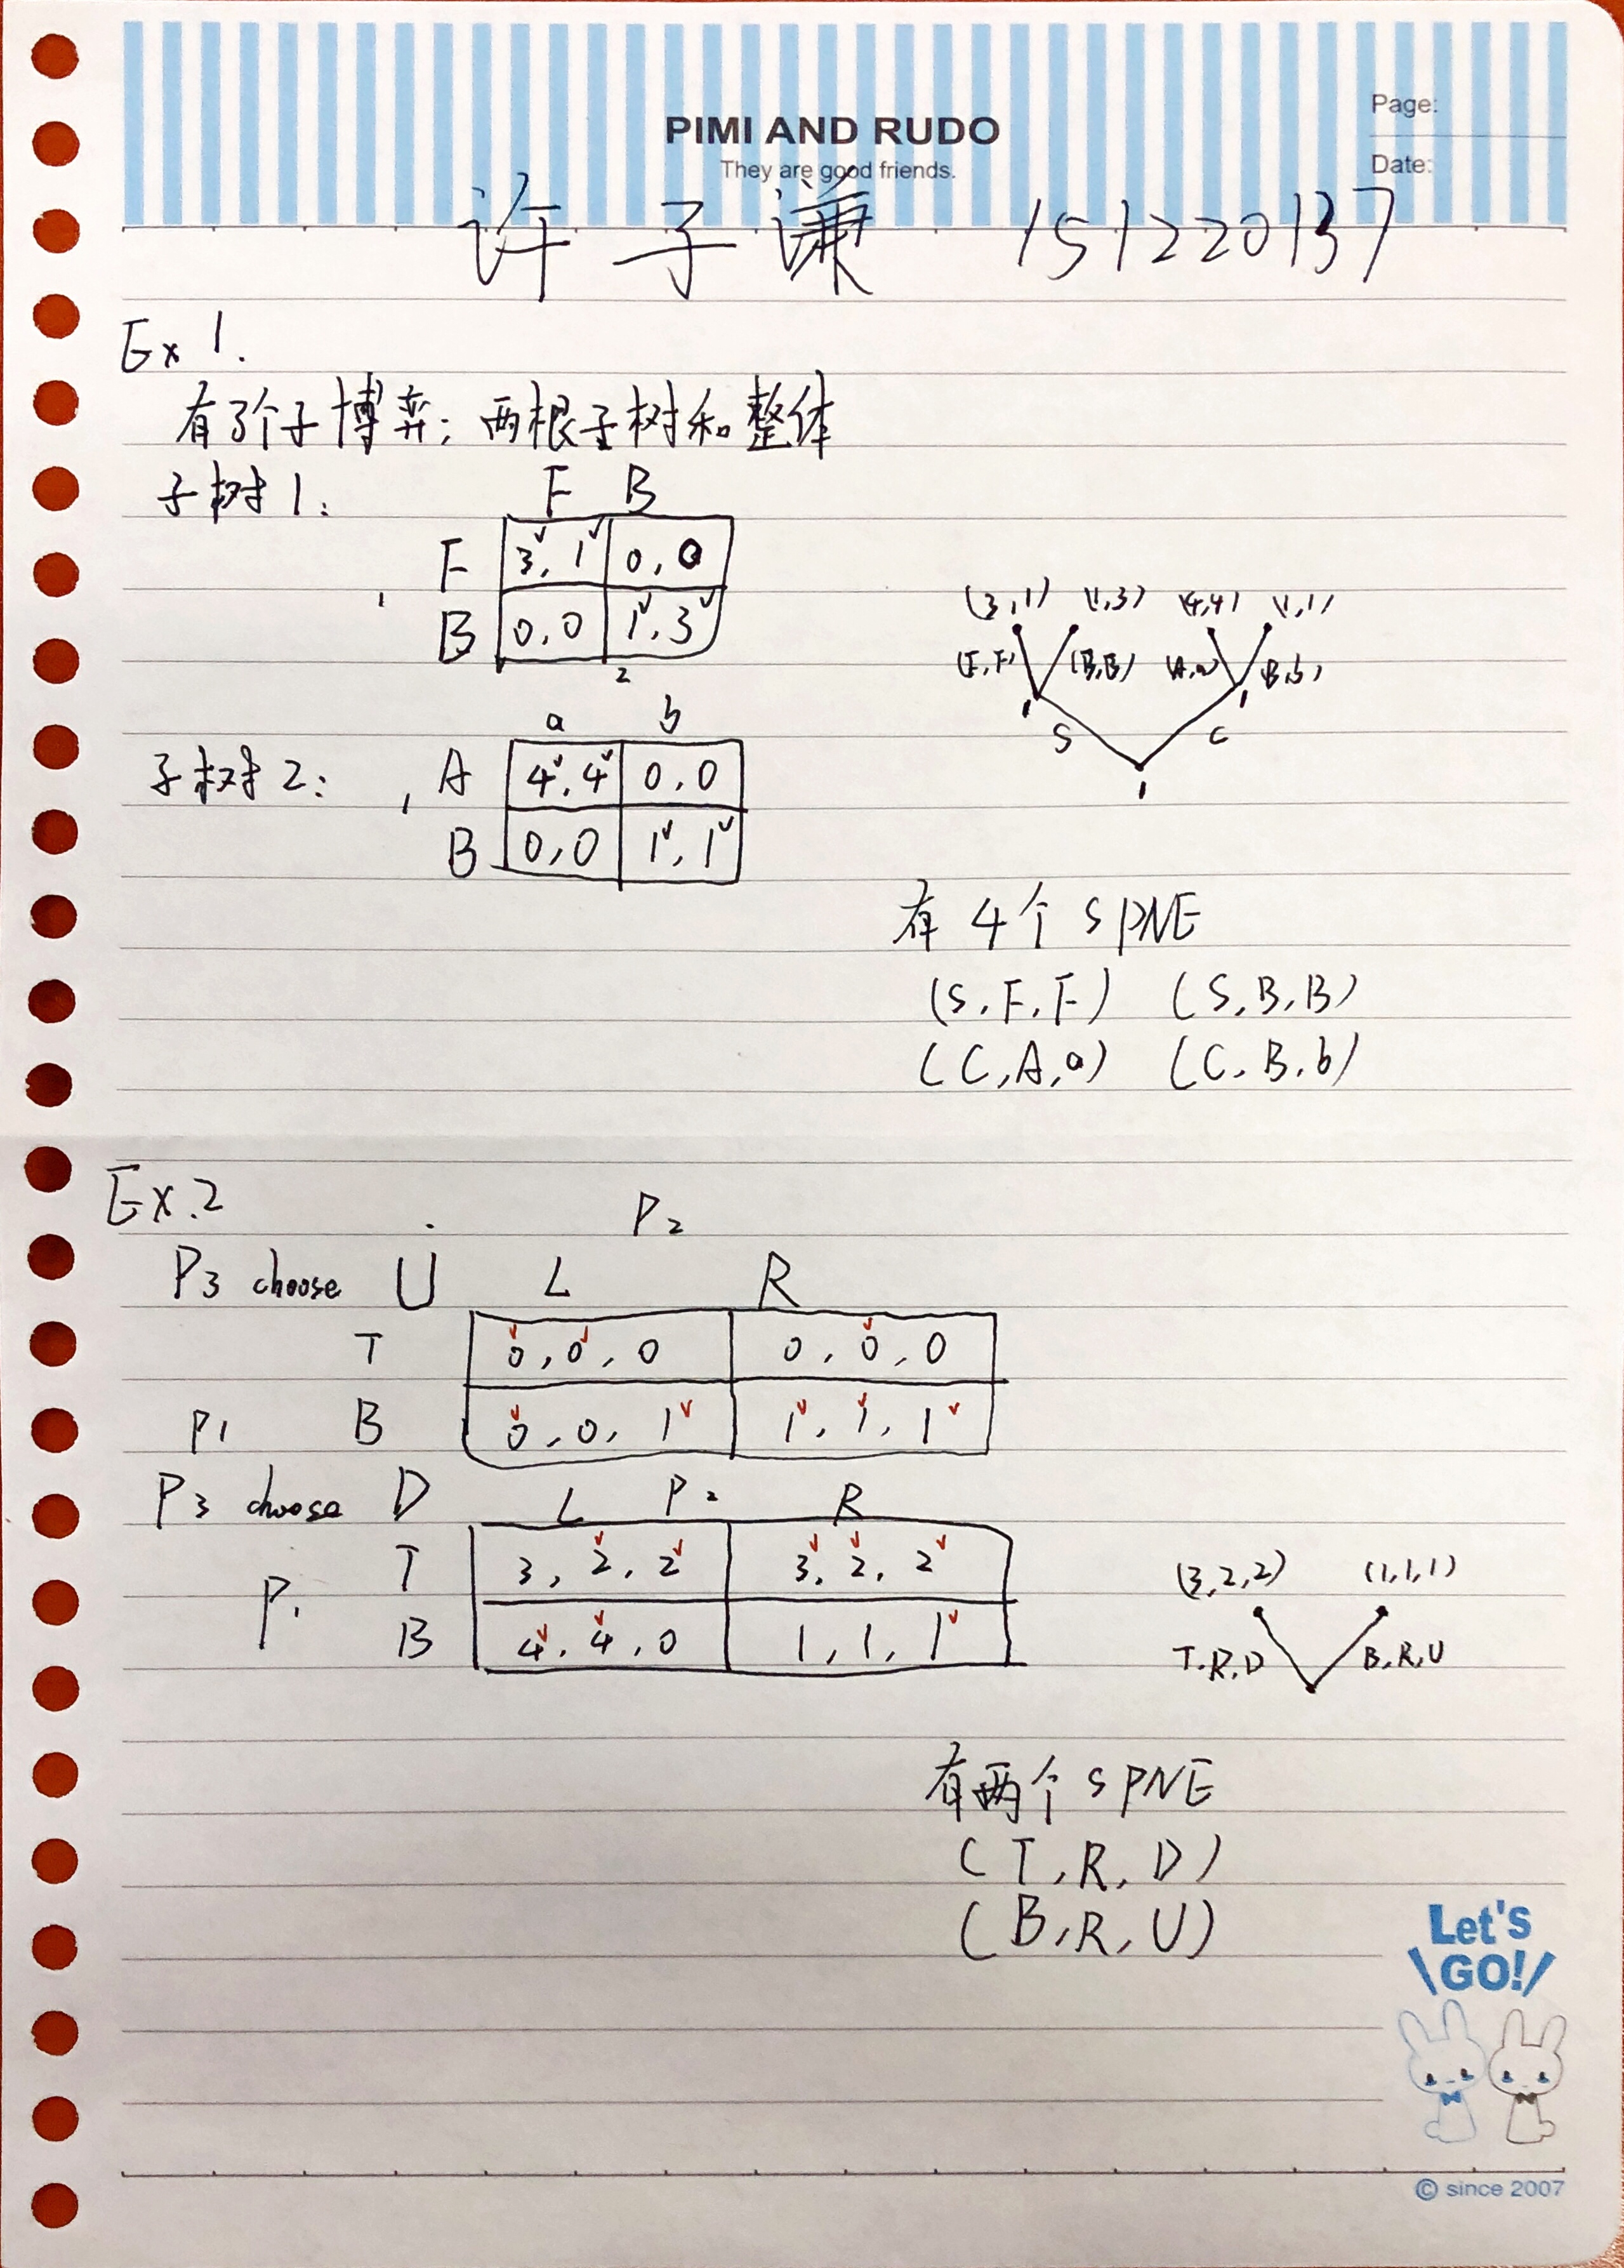 PIMI AND RUDO
They are good friends.
Page:
Date:
许子谦 151220137
Ex 1.
有3个子博弈; 两根子树和整体
子树1:
F B
F 3, 1 0, 0
1
B 0, 0 1, 3
2
(3,1) (1,3) (4,4) (1,1)
(F,F) (B,B) (A,a) (B,b)
1 1
S C
1
a b
子树2: 1 A 4, 4 0, 0
B 0, 0 1, 1
有4个SPNE
(S, F, F) (S, B, B)
(C, A, a) (C, B, b)
Ex.2
P2
P3 choose U L R
T 0, 0, 0 0, 0, 0
P1 B 0, 0, 1 1, 1, 1
P3 choose D L P2 R
T 3, 2, 2 3, 2, 2
P1
B 4, 4, 0 1, 1, 1
(3,2,2) (1,1,1)
T,R,D B,R,U
有两个SPNE
(T, R, D)
(B, R, U)
Let's
GO!
© since 2007